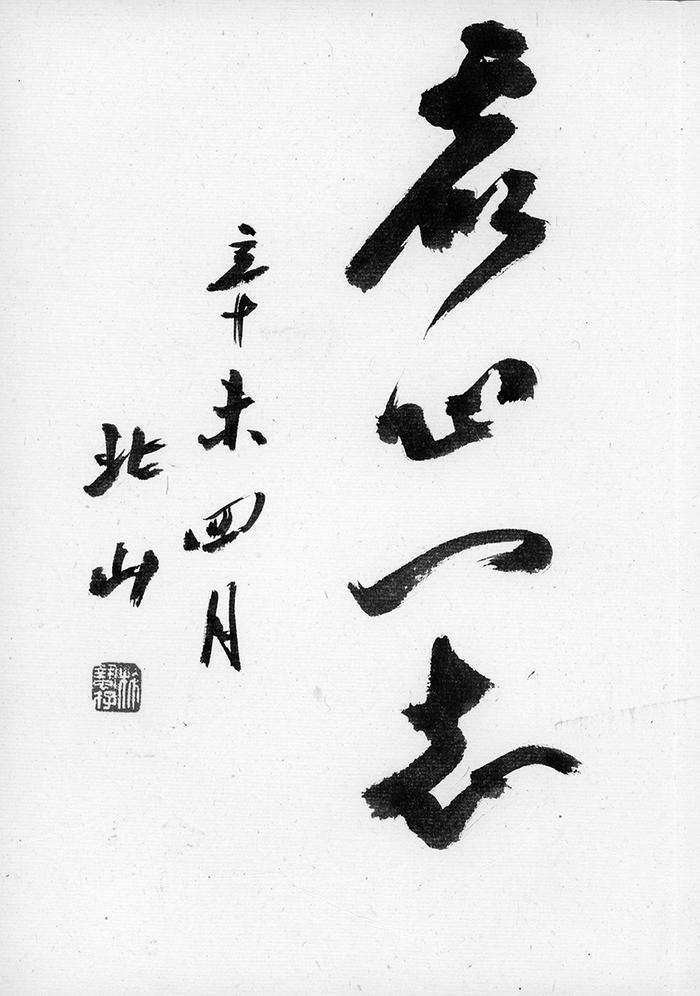 虛心一志
辛未四月
北山